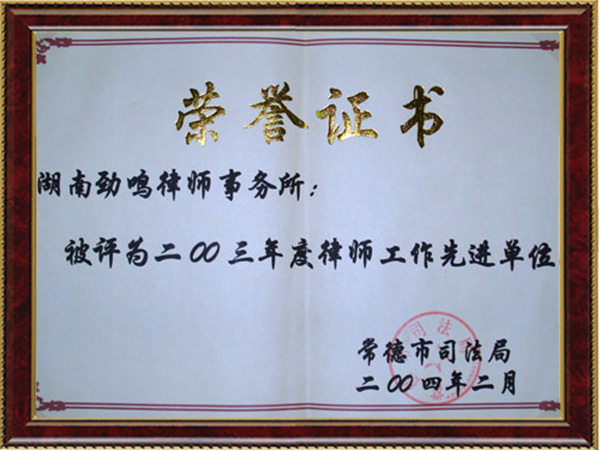 荣誉证书
湖南劲鸣律师事务所：
被评为二00三年度律师工作先进单位
常德市司法局
二00四年二月